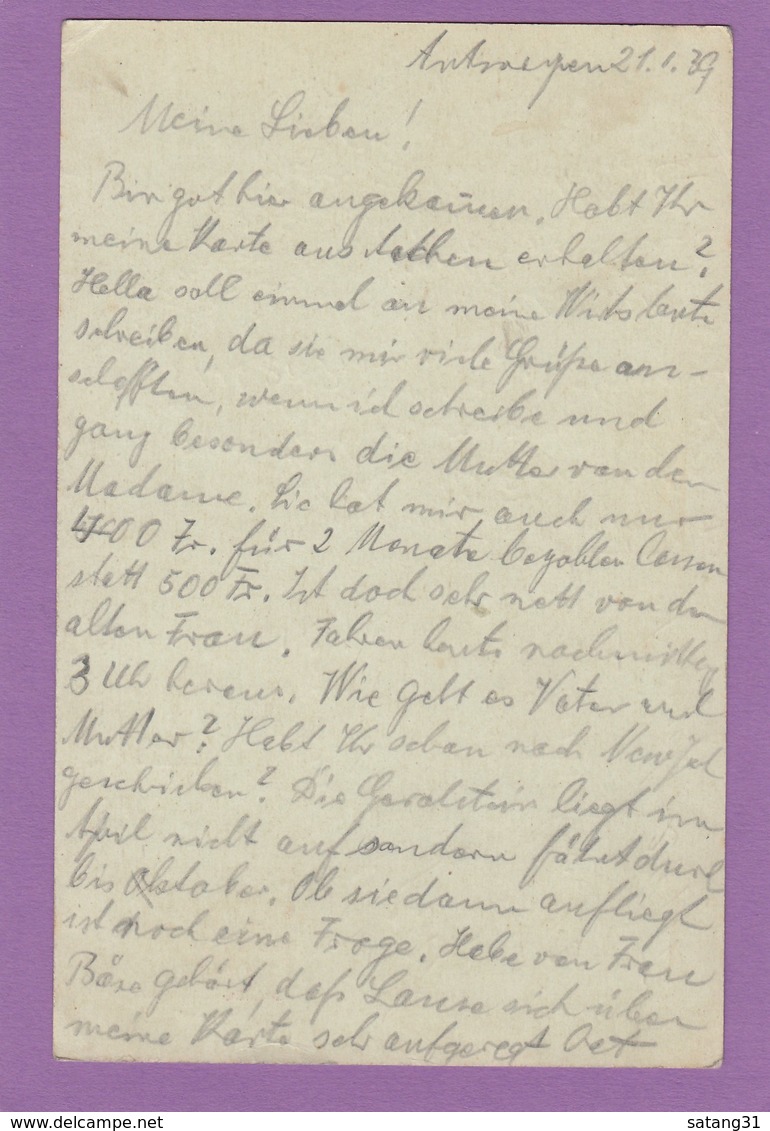 Antwerpen 21.1.39
Meine Lieben!
Bin gut hier angekom̄en. Habt Ihr
meine Karte aus erhalten?
Hella soll einmal an meine Wirtsleute
schreiben, da sie mir viele Grüße an-
schafften, wenn ich schreibe und
ganz besonders die Mutter von der
Madame. Sie hat mir auch nur
400 Fr. für 2 Monate bezahlen lassen
statt 500 Fr. Ist doch sehr nett von der
alten Frau. Fahren heute nachmittag
3 Uhr heraus. Wie geht es Vater und
Mutter? Habt Ihr schon nach
geschrieben? Die Gerolstein liegt im
April nicht auf sondern fährt durch
bis Oktober. Ob sie dann aufliegt
ist noch eine Frage. Habe von Frau
Böse gehört, daß sich über
meine Karte sehr aufgeregt hat
satang31